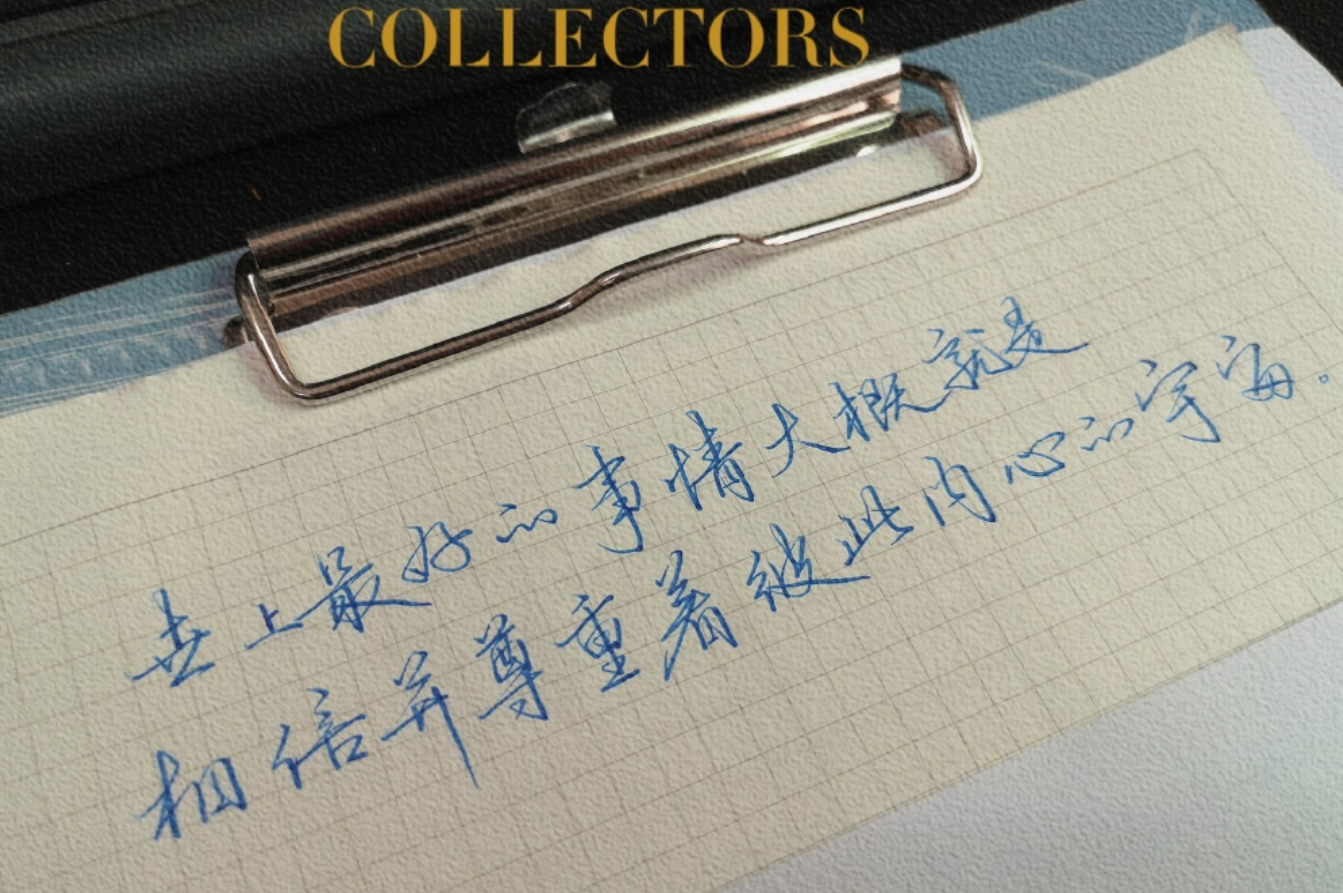 COLLECTORS
世上最好的事情大概就是
相信并尊重着彼此内心的宇宙。